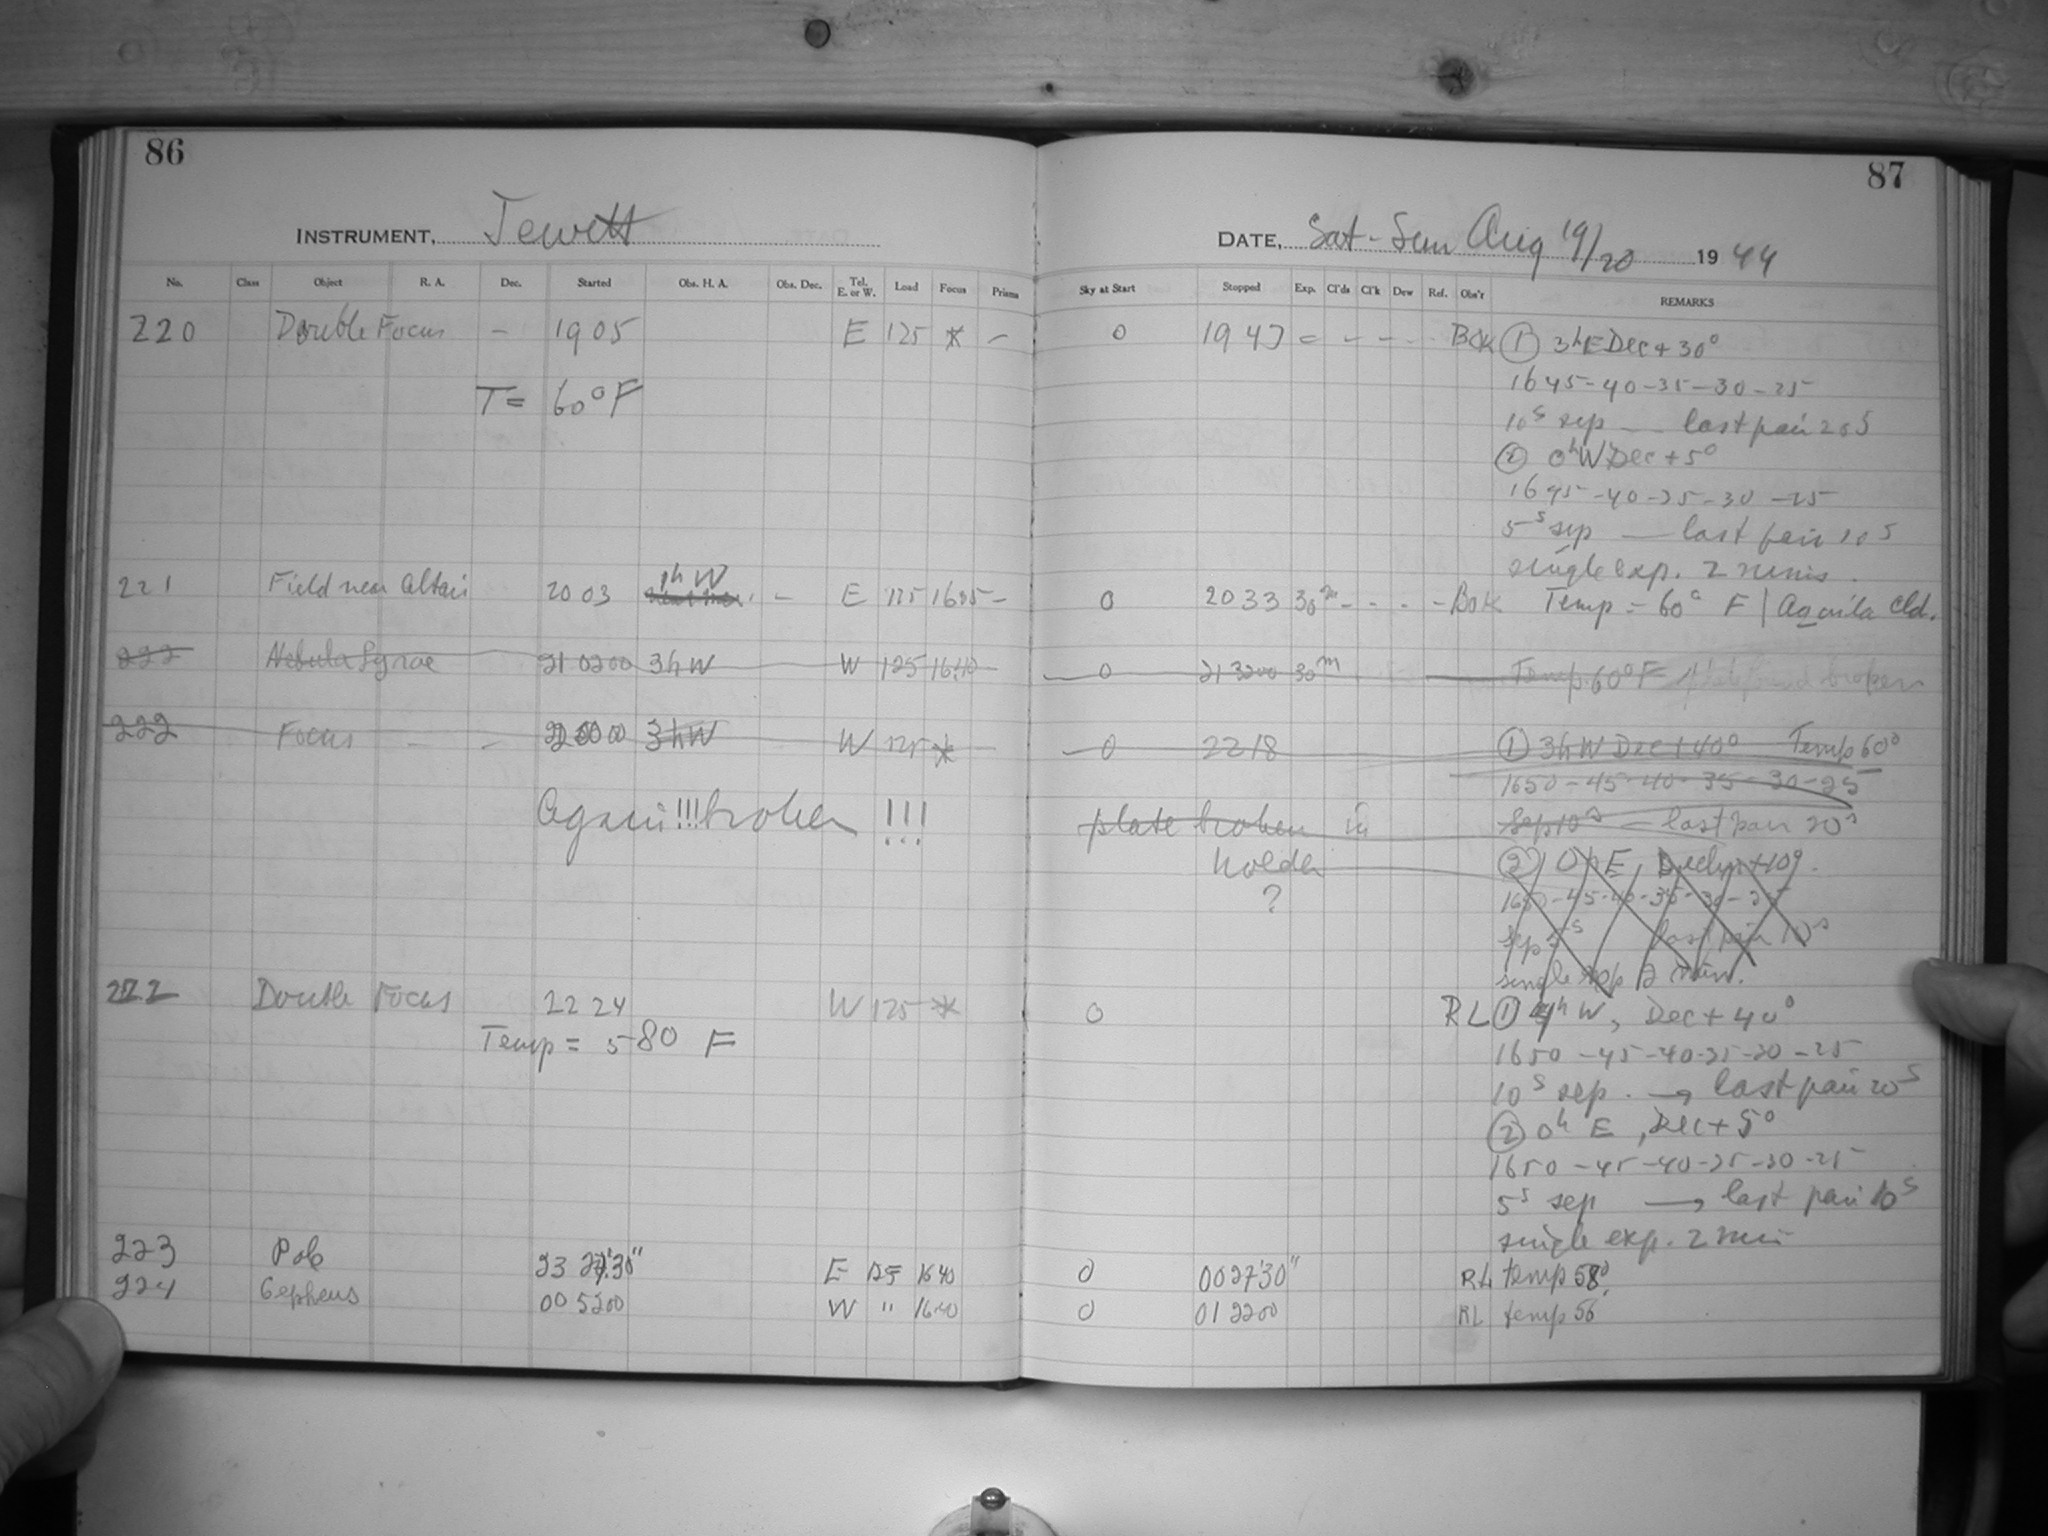 86
87
INSTRUMENT, Jewett
DATE, Sat - Sun Aug 19/20 1944
No. Class Object R. A. Dec. Started Obs. H. A. Obs. Dec. Tel. E. or W. Load Focus Prisms Sky at Start Stopped Exp. Cl'ds Cl'k Dew Ref. Obs'r REMARKS
220 Double Focus - 1905 E 125 * - 0 1947 - - - - Bok ① 3h E Dec + 30°
1645-40-35-30-25
T = 60°F
10s sep — last pair 20s
② 0h W Dec + 5°
1645-40-35-30-25
5s sep — last pair 10s
single exp. 2 mins.
221 Field near Altair 2003 1h W - E 125 1635 - 0 2033 30m - - - - Bok Temp = 60° F | Aquila Cld.
222 Nebula Lyrae 21 0200 3hW W 125 1640 - 0 21 3200 30m Temp. 60°F plate found broken
222 Focus - - 220000 3hW W 125 * - 0 2218 ① 3h W Dec + 40° Temp 60°
1650-45-40-35-30-25
Again!!! broken !!! plate broken in Sep 10s - last pair 20s
holder ② 0h E, Decl + 10°.
? 1650-45-40-35-30-25
sep 5s last pair 10s
single exp 2 min.
222 Double Focus 2224 W 125 * 0 RL ① 4h W, Dec + 40°
Temp = 580 F 1650-45-40-35-30-25
10s sep. → last pair 20s
② 0h E, Dec + 5°
1650-45-40-35-30-25
5s sep → last pair 10s
single exp. 2 min
223 Pole 23 27'30" E 125 1640 0 00 27'30" RL temp 58°
224 Cepheus 00 5200 W " 1640 0 01 2200 RL temp 56